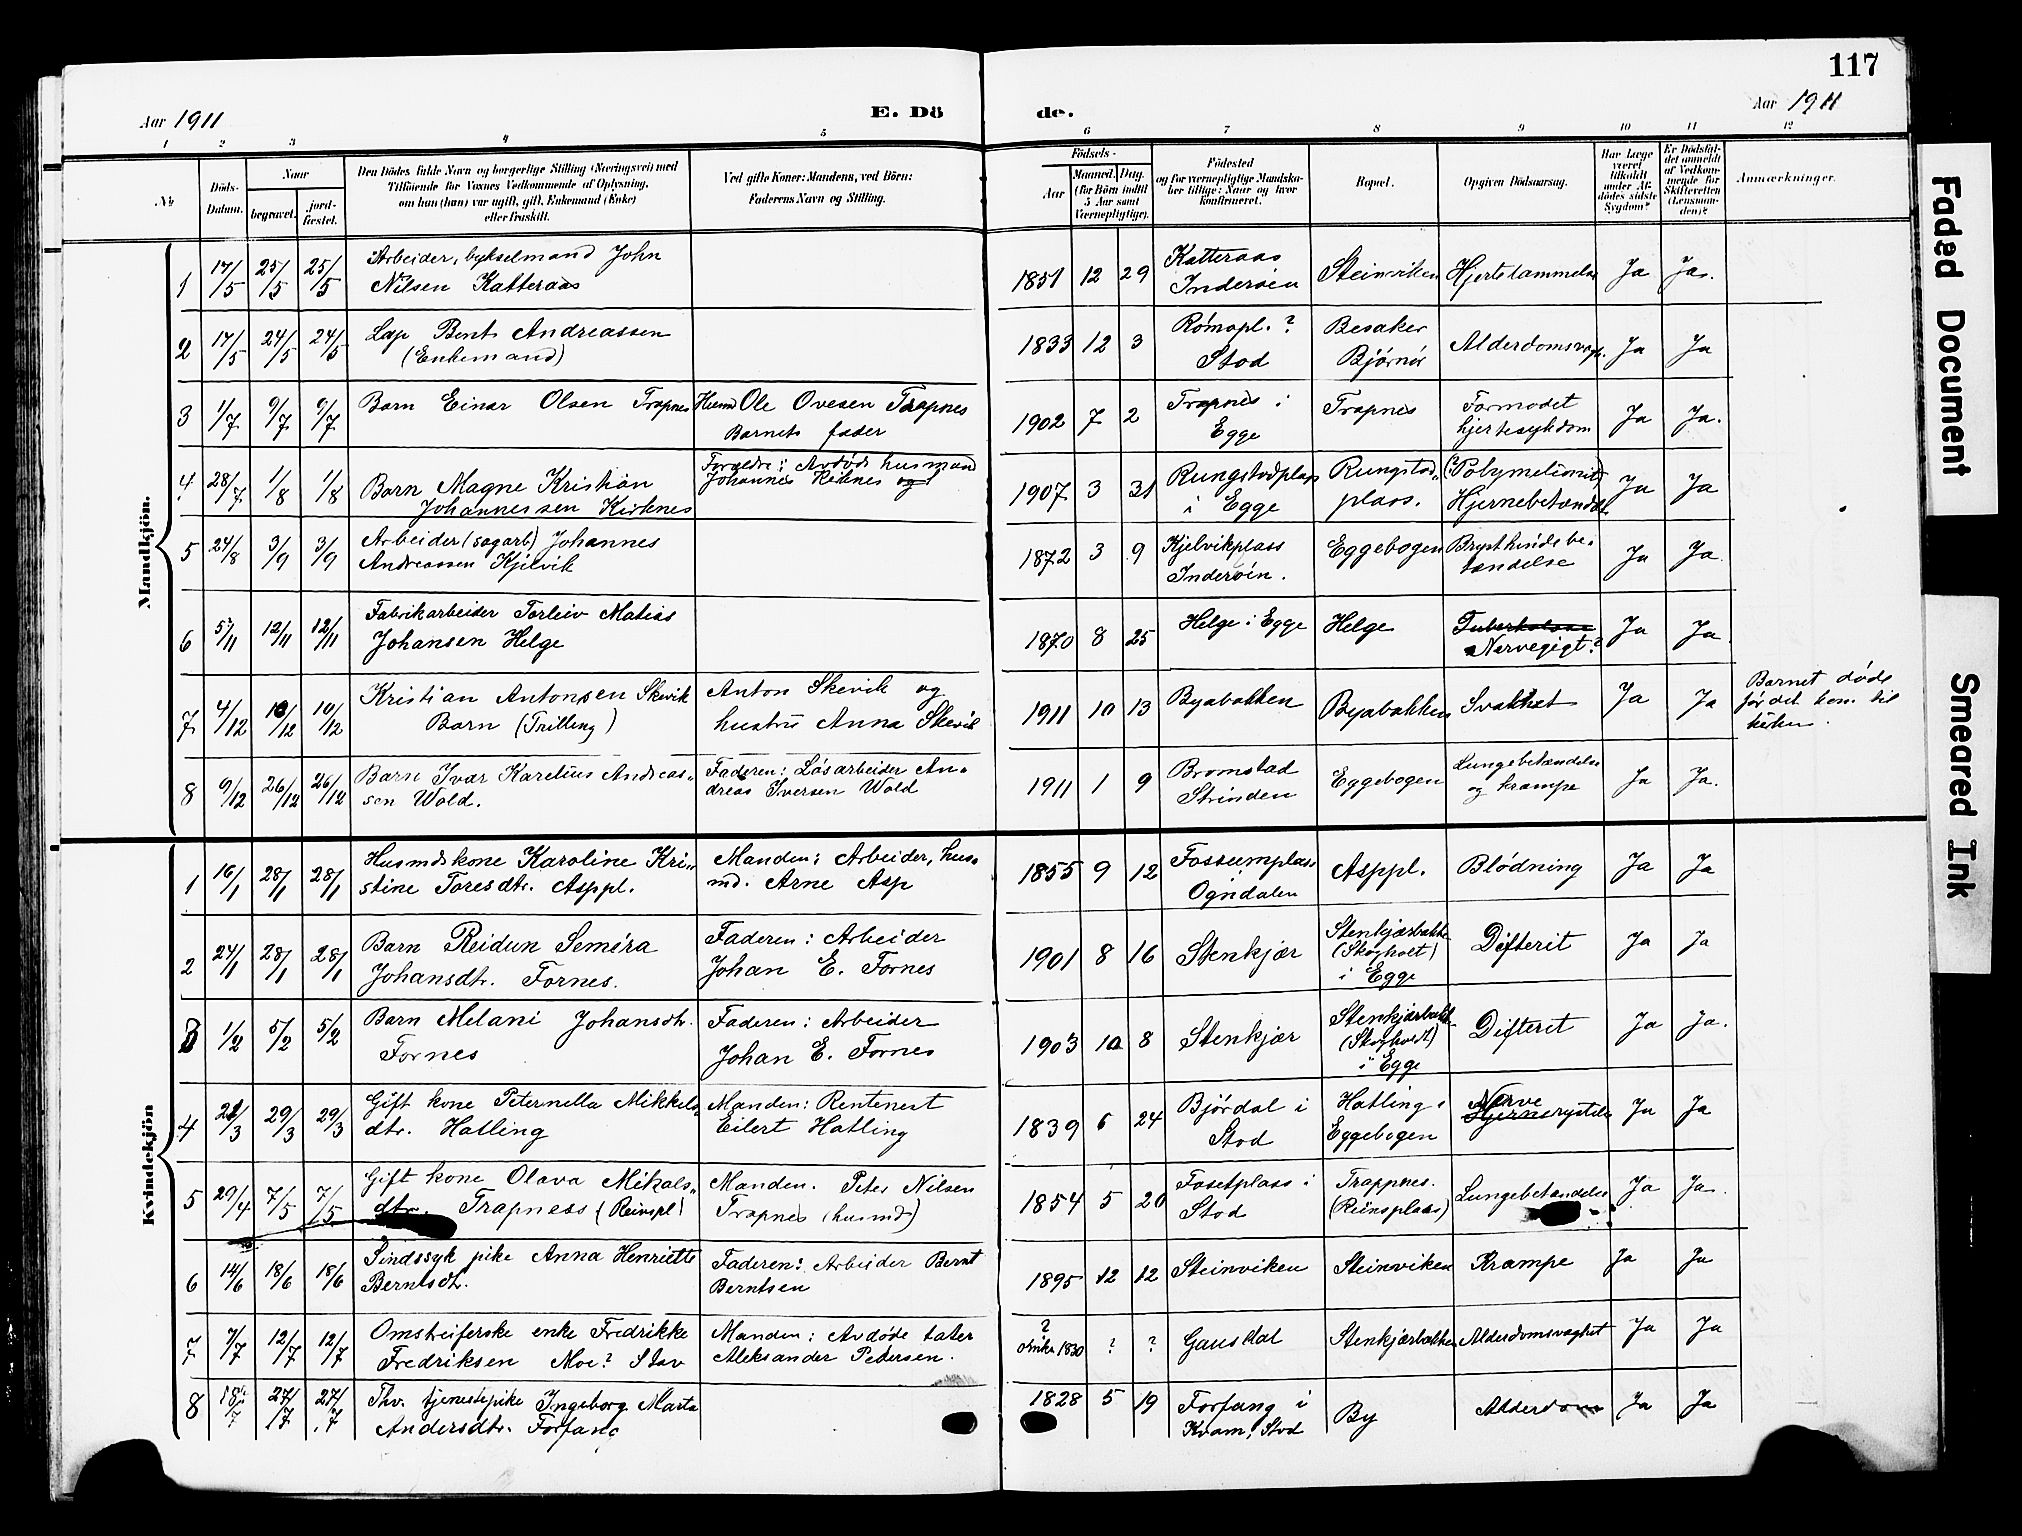 117
Aar 1911
E. Dö
de.
Aar 1911
1 2 3 4 5 6 7 8 9 10 11 12
No
Döds-Datum.
Naar
begravet.
jord-fæstet.
Den Dödes fulde Navn og borgerlige Stilling (Næringsvei) med
Tilföiende for Voxnes Vedkommende af Oplysning,
om hun (han) var ugift, gift, Enkemand (Enke)
eller fraskilt.
Ved gifte Koner: Mandens, ved Börn:
Faderens Navn og Stilling.
Födsels-
Aar
Maaned. Dag.
(for Börn indtil
5 Aar samt
Værnepligtige).
Födested
og for værnepligtige Mandska-
ber tillige: Naar og hvor
konfirmeret.
Bopæl.
Opgiven Dödsaarsag.
Har Læge
været
tilkaldt
under Af-
dödes sidste
Sygdom?
Er Dödsfal-
det anmeldt
af Vedkom-
mende for
Skifteretten
(Lensman-
den)?
Anmærkninger.
Mandkjön.
1 17/5 25/5 25/5 Arbeider, bykselmand John
Nilsen Katteraas
1851 12 29 Katteraas
Inderøien
Steinviken Hjertelammelse Ja Ja.
2 17/5 24/5 24/5 Lap Bent Andreassen
(Enkemand)
1833 12 3
Stod
Besaker
Bjørnør
Ja Ja
3 1/7 9/7 9/7 Barn Einar Olsen Trapnes
Husmd Ole Ovesen Trapnes
Barnets fader
1902 7 2 Trapnes i
Egge
Trapnes Formodet
hjertesykdom
Ja Ja.
4 28/7 1/8 1/8 Barn Magne Kristian
Johannessen Kirknes
Foreldre: Avdøde husmand
Johannes
1907 3 31 Rungstadplass
i Egge
Rungstad-
plass.
Ja Ja
5 24/8 3/9 3/9 Arbeider (sagarb) Johannes
Andreassen Kjelvik
1872 3 9 Kjelvikplass
Inderøin.
Eggebogen Brysthindebe-
tændelse
Ja Ja
6 5/11 12/11 12/11 Fabrikarbeider Torleiv Matias
Johansen Helge
1870 8 25 Helge i Egge Helge Tuberkulose
Nervegigt?
Ja Ja
7 4/12 10/12 10/12 Kristian Antonsen Skevik
Barn (Trilling)
Anton Skevik og
hustru Anna Skevik
1911 10 13 Byabakken Byabakken Svakhet Ja Ja
Barnet døde
før det kom til
kirken.
8 9/12 26/12 26/12 Barn Ivar Karelius Andreas-
sen Wold.
Faderen: Løsarbeider An-
dreas Iversen Wold
1911 1 9 Bromstad
Strinden
Eggebogen Lungebetændelse
og krampe
Ja Ja.
Kvindekjön
1 16/1 28/1 28/1 Husmdskone Karoline Kri-
stine Toresdtr. Asppl.
Manden: Arbeider, hus-
md. Arne Asp
1855 9 12 Fossumplass
i
Ogndalen
Asppl. Blødning Ja Ja
2 24/1 28/1 28/1 Barn Reidun Semira
Johansdtr. Fornes.
Faderen: Arbeider
Johan E. Fornes
1901 8 16 Stenkjær Stenkjærbakken
(Skogholt)
i Egge
Difterit Ja Ja
3 1/2 5/2 5/2 Barn Melani Johansdtr.
Fornes
Faderen: Arbeider
Johan E. Fornes
1903 10 8 Stenkjær Stenkjærbakk
(Skogholt)
i Egge
Difterit Ja Ja.
4 22/3 29/3 29/3 Gift kone Peternella Mikkels
dtr. Hatling
Manden: Rentenest
Eilert Hatling
1839 6 24 Bjørdal i
Stod
Hatling i
Eggebogen
Nerve
Ja Ja
5 29/4 7/5 7/5 Gift kone Olava Mikals-
dtr. Trapness (Reinspl)
Manden. Peter Nilsen
Trapnes (husmd)
1854 5 20 Fosetplass i
Stod
Trappnes.
(Reinsplass)
Lungebetændelse Ja Ja.
6 14/6 18/6 18/6 Sindssyk pike Anna Henriette
Berntsdtr.
Faderen: Arbeider Bernt
Berntsen
1895 12 12 Steinviken Steinviken Krampe Ja Ja
7 7/7 12/7 12/7 Omstreiferske enke Fredrikke
Fredriksen Moe? Stav
Manden: Avdøde tater
Aleksander Pedersen.
?
cirka 1830 ? ? Gausdal Stenkjærbakken Alderdomsvaghet Ja Ja
8 18/7 27/7 27/7 Fhv. tjenestepike Ingeborg Marta
Andersdtr. Forfang
1828 5 19 Forfang i
Kvam, Stod
By Alderdom Ja Ja
Faded Document
Smeared Ink